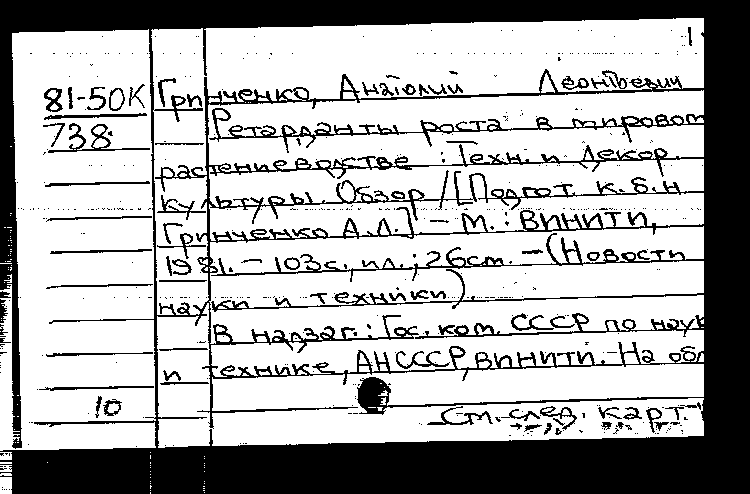 1
81-50К Гринченко, Анатолий Леонтьевич
738 Ретарданты роста в мировом
растениеводстве : Техн. и декор.
культуры. Обзор / [Подгот. к.б.н.
Гринченко А.Л.] - М. : ВИНИТИ,
1981. - 103с., ил. ; 26см. - (Новости
науки и техники).
В надзаг.: Гос. ком. СССР по наук
и технике, АН СССР, ВИНИТИ. - На обл
10
См. след. карт.